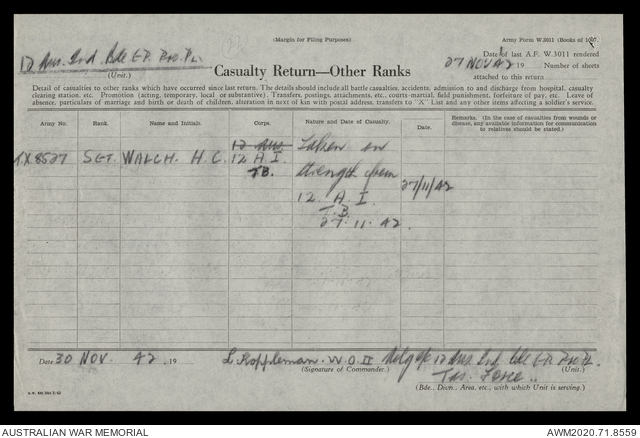 (Margin for Filing Purposes)
Army Form W.3011 (Books of 100).
12 Aus. Inf. Bde GP. Pro. Pl.
(Unit.)
Casualty Return—Other Ranks
Date of last A.F. W.3011 rendered
27 NOV 42 19 Number of sheets
attached to this return
Detail of casualties to other ranks which have occurred since last return. The details should include all battle casualties, accidents, admission to and discharge from hospital, casualty
clearing station, etc. Promotion (acting, temporary, local or substantive). Transfers, postings, attachments, etc., courts-martial, field punishment, forfeiture of pay, etc. Leave of
absence, particulars of marriage and birth or death of children, alteration in next of kin with postal address, transfers to "X" List and any other items affecting a soldier's service.
Army No. Rank. Name and Initials. Corps. Nature and Date of Casualty. Date. Remarks. (In the case of casualties from wounds or
disease, any available information for communication
to relatives should be stated.)
TX8527 SGT. WALCH. H. C. 12 Aus. 12 A. I. T.B. Taken on
strength from 27/11/42
12. A. I.
T. B.
27. 11. 42.
Date 30 NOV. 42 19 L Koppleman. W.O. II 12 Aus. Inf. Bde GP. Pro Pl.
(Signature of Commander.) (Unit.)
Tas. Force..
(Bde., Divn., Area, etc., with which Unit is serving.)
AUSTRALIAN WAR MEMORIAL AWM2020.71.8559